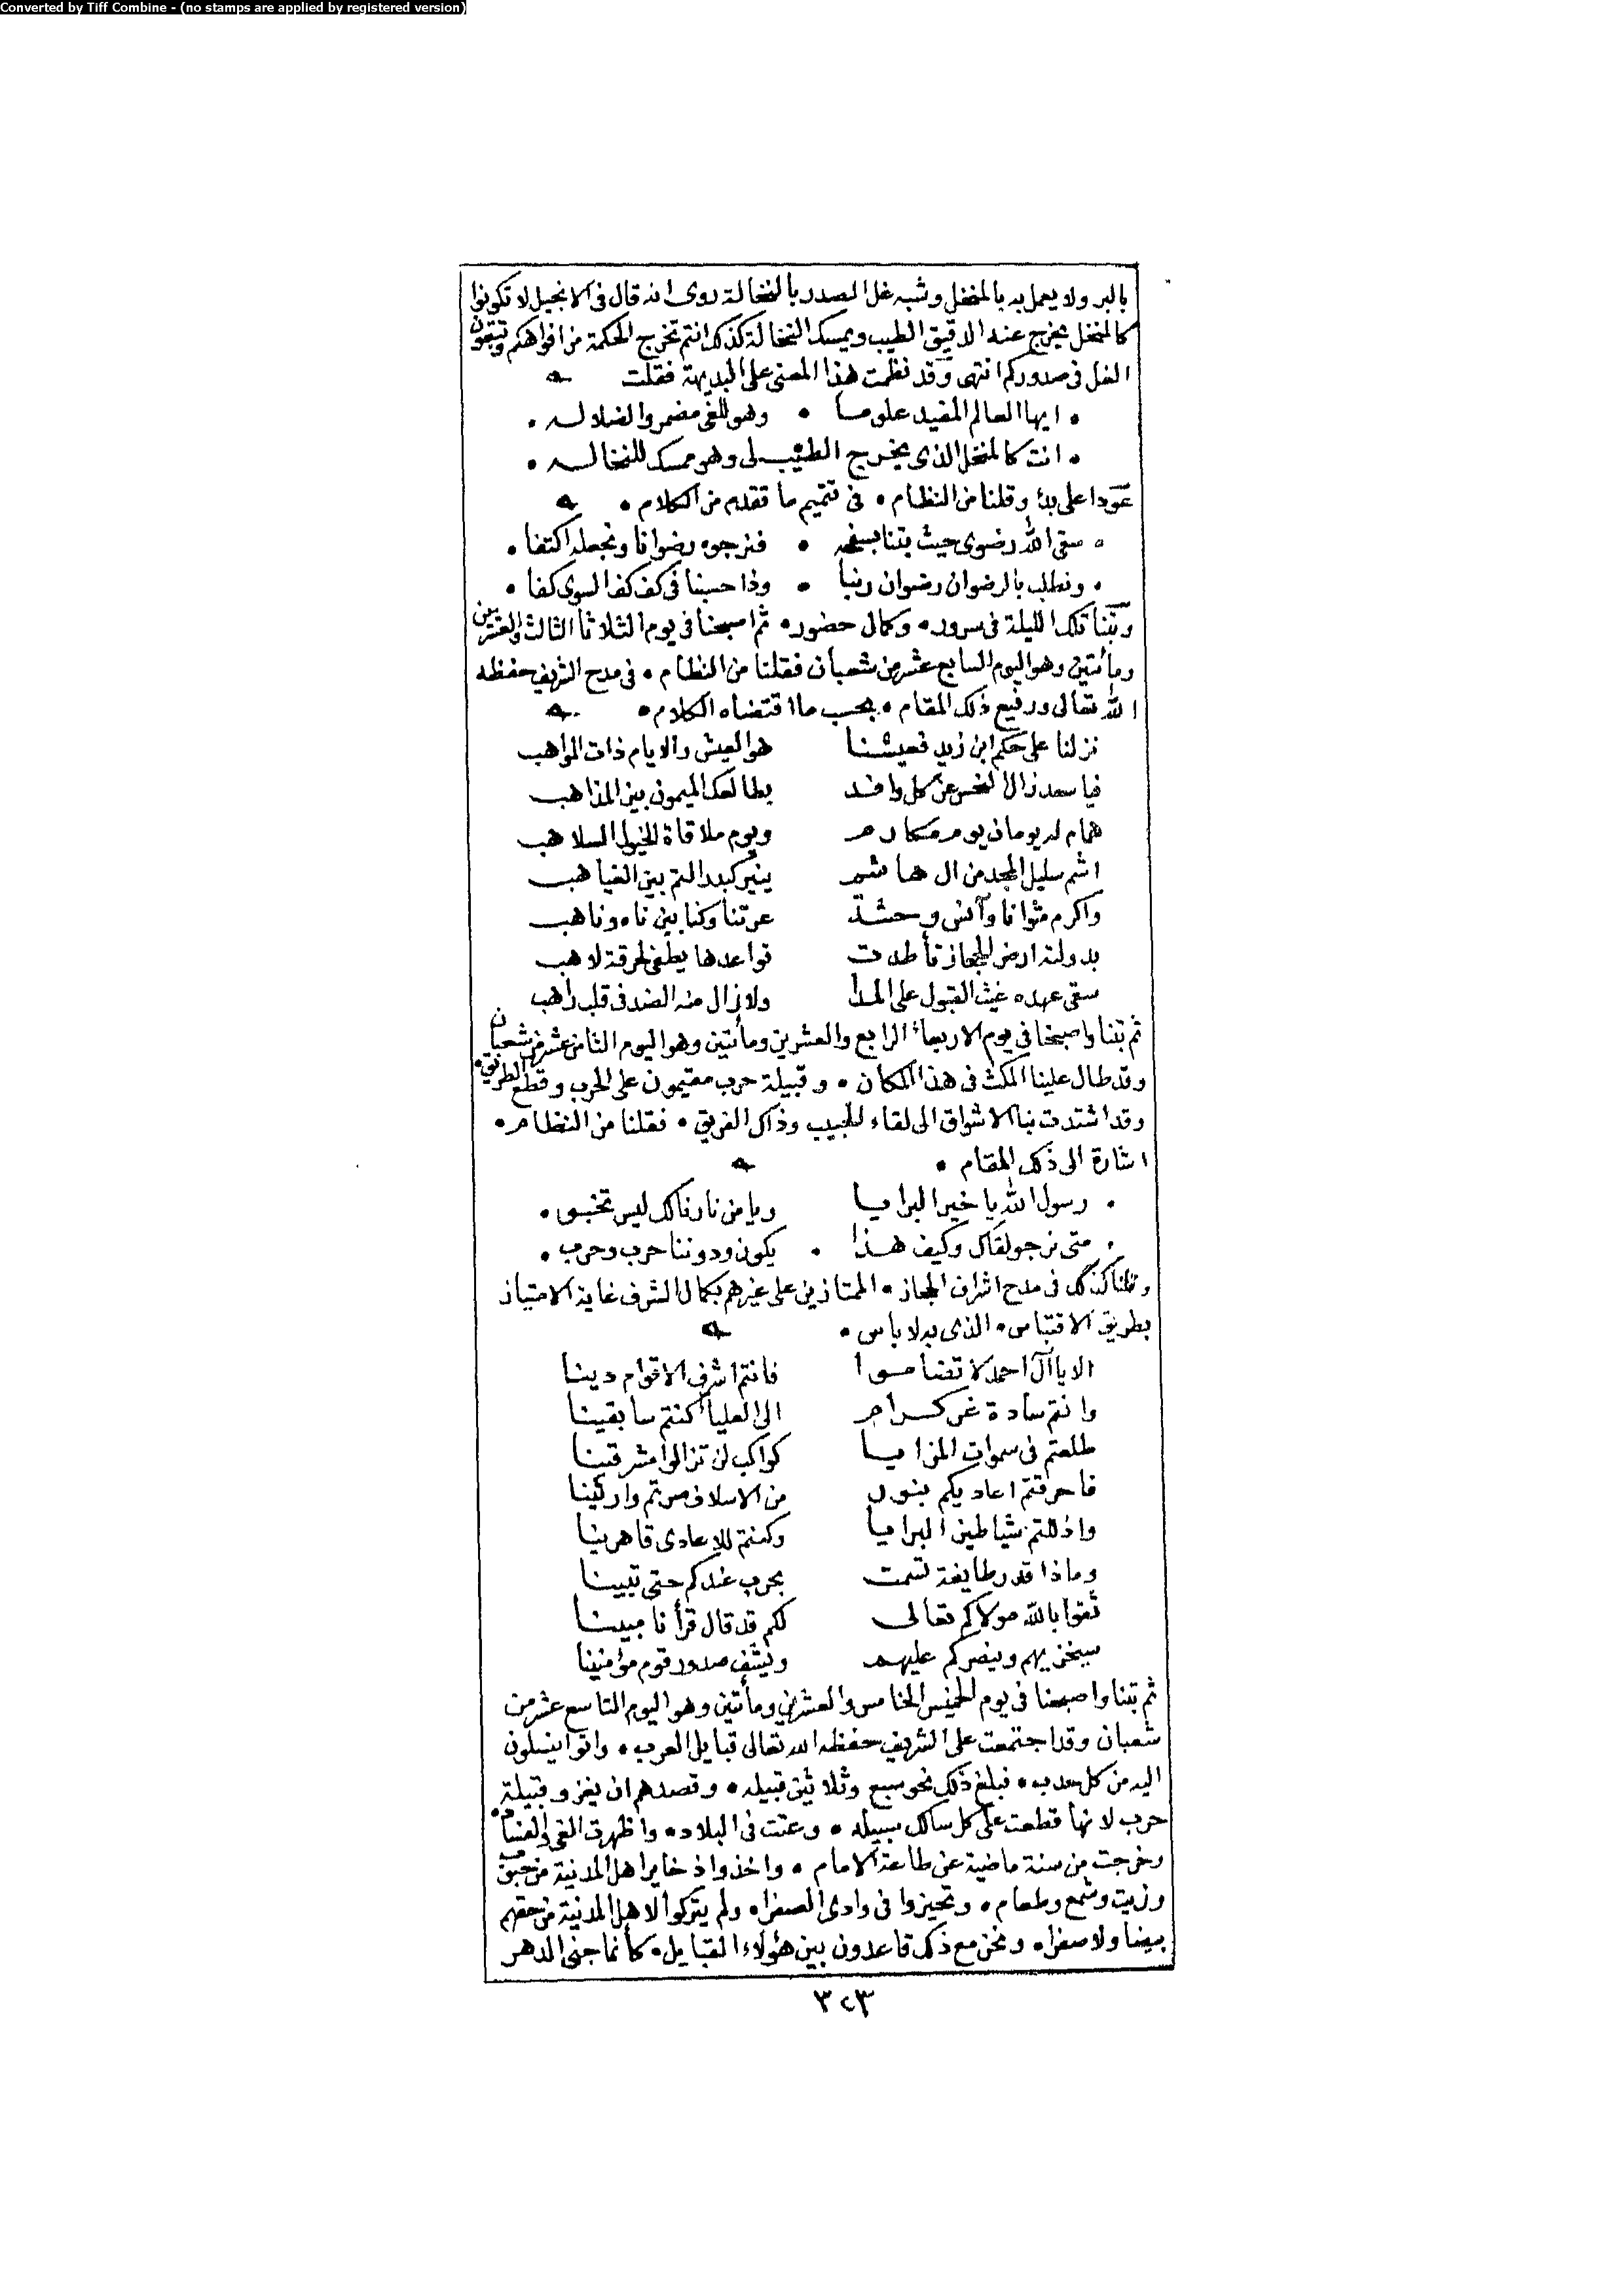 Converted by Tiff Combine - (no stamps are applied by registered version)
بالبر ولا يعمل به بالمنخل وشبه غل الصدر بالنخالة روى انه قال فى الانجيل لا تكونوا
كالمنخل يخرج عنه الدقيق الطيب ويمسك النخالة كذلك انتم تخرج الحكمة من افواهكم وتبقون
الغل فى صدوركم انتهى وقد نظمت هذا المعنى على البديهة فقلت
• ايها العالم المفيد علوما • وهو للغى مضمر والضلاله •
• انت كالمنخل الذى يخرج الطيب لى وهو ممسك للنخاله •
عودا على بدء وقلنا من النظام • فى تتميم ما تقدم من الكلام •
• سقى الله رضوى حيث بتنا بسفحه • فنرجوه رضوانا ونجعله اكتفا •
• ونطلب بالرضوان رضوان ربنا • وذا حسبنا فى كف كف السوى كفا •
وبتنا تلك الليلة فى سرور • وكمال حضور • ثم اصبحنا فى يوم الثلاثا الثالث والعشرين
ومأتين وهو اليوم السابع عشر من شعبان فقلنا من النظام • فى مدح الشريف حفظه
الله تعالى ورفيع ذلك المقام • بحسب ما اقتضاه الكلام •
نزلنا على حكم ابن زيد فعيشنا هو العيش والايام ذات المواهب
فيا سعد زال النحس عن كل وافد بطالعك الميمون بين المذاهب
همام له يومان يوم مكارم ويوم ملاقاة الخيول السلاهب
اشم سليل المجد من ال هاشم ينير كبدر التم بين الغياهب
واكرم مثوانا وآنس وحشة عرتنا وكنا بين ناه وناهب
بدولته ارض الحجاز تأطدت قواعدها يطفى لحرقة لاهب
سقى عهده غيث القبول على المدا ولا زال منه الضد فى قلب راهب
ثم بتنا واصبحنا فى يوم الاربعاء الرابع والعشرين ومأتين وهو اليوم الثامن عشر من شعبان
وقد طال علينا المكث فى هذا المكان • وقبيلة حرب مقيمون على الحرب وقطع الطريق •
وقد اشتدت بنا الاشواق الى لقاء الحبيب وذاك الفريق • فقلنا من النظام •
اشارة الى ذلك المقام •
• رسول الله يا خير البرايا ويا من نار ذلك ليس تخبو •
• متى نرجو لقاك وكيف هذا • يكون ودوننا حرب وحرب •
وقلنا كذلك فى مدح اشراف الحجاز • الممتازين على غيرهم بكمال الشرف غاية الامتياز
بطريق الاقتباس • الذى به لا باس •
الا يا آل احمد لا تضاموا فانتم اشرف الاقوام دينا
وانتم سادة غر كرام الى العلياء كنتم سابقينا
طلعتم فى سموات المزايا كواكب لن تزالوا مشرقينا
فاحرقتم اعاديكم بنور من الاسلاف صرتم وارثينا
واذللتم شياطين البرايا وكنتم للاعادى قاهرينا
وماذا قدر طايفة تسمت بحرب عندكم حتى تبينا
ثقوا بالله مولاكم تعالى لكم قد قال قرأنا مبينا
سيخزيهم وينصركم عليهم ويشف صدور قوم مؤمنينا
ثم بتنا واصبحنا فى يوم الخميس الخامس والعشرين ومأتين وهو اليوم التاسع عشر من
شعبان وقد اجتمعت على الشريف حفظه الله تعالى قبايل العرب • واتوا ينسلون
اليه من كل حدب • فبلغ ذلك نحو سبع وثلاثين قبيله • وقصدهم ان يغزو قبيلة
حرب لانها قطعت على كل سالك سبيله • وعثت فى البلاد • واظهرت الغى والفساد •
وخرجت من سنة ماضية عن طاعة الامام • واخذوا ذخاير اهل المدينة من حبوب
وزيت وشمع وطعام • وتحيزوا فى وادى الصفرا • ولم يتركوا لاهل المدينة من حقهم
بيضا ولا صفرا • ونحن مع ذلك قاعدون بين هؤلاء القبايل • كأنما جنى الدهر
٣٢٣